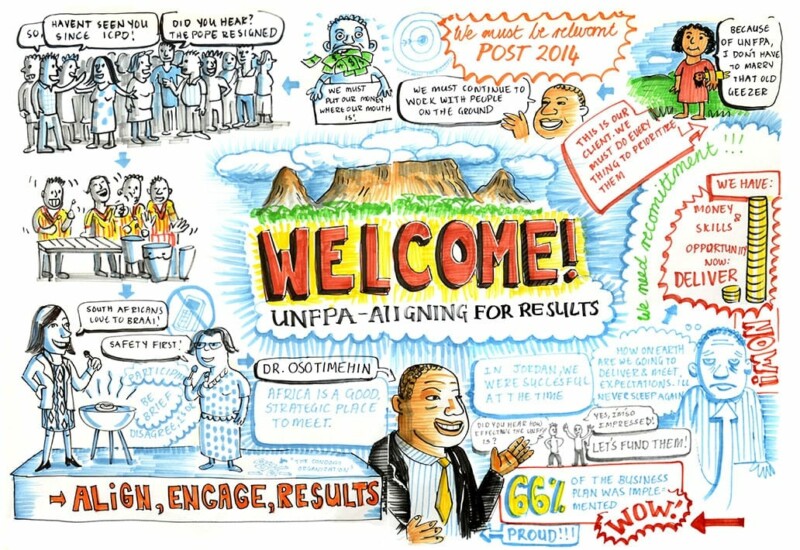 SO,
HAVENT SEEN YOU
SINCE ICPD!
DID YOU HEAR?
THE POPE RESIGNED
WE MUST
PUT OUR MONEY
WHERE OUR MOUTH
IS!
We must be relevant
POST 2014
WE MUST CONTINUE TO
WORK WITH PEOPLE
ON THE GROUND
BECAUSE
OF UNFPA,
I DON'T HAVE
TO MARRY
THAT OLD
GEEZER
THIS IS OUR
CLIENT. WE
MUST DO EVERY
THING TO PRIORITIZE
THEM
we need recomittment!!!
WE HAVE:
MONEY
&
SKILLS
OPPORTUNITY
NOW:
DELIVER
NOW!!
WELCOME!
UNFPA-AlIGNING FOR RESULTS
SOUTH AFRICANS
LOVE TO BRAAI!
SAFETY FIRST!
BE
BRIEF
DISAGREE
DR. OSOTIMEHIN
AFRICA IS A GOOD,
STRATEGIC PLACE
TO MEET.
→ ALIGN, ENGAGE, RESULTS
IN JORDAN, WE
WERE SUCCESFUL
AT THE TIME
DID YOU HEAR HOW
EFFECTIVE THE UNFPA
IS?
YES,
IMPRESSED!
LET'S FUND THEM!
HOW ON EARTH
ARE WE GOING TO
DELIVER & MEET
EXPECTATIONS. I'LL
NEVER SLEEP AGAIN
66%
OF THE BUSINESS
PLAN WAS IMPLE-
MENTED
WOW!
PROUD!!!